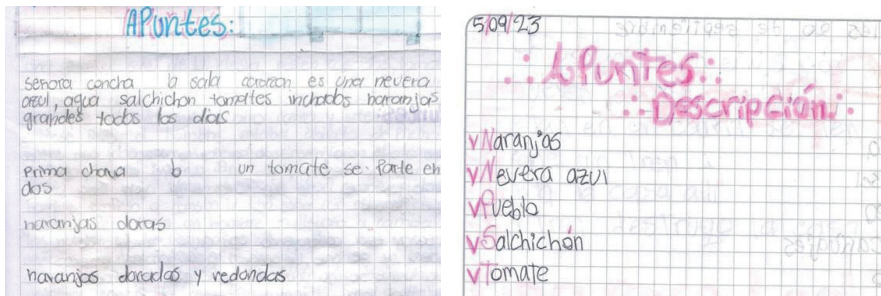 APuntes:
señora concha la sala corazon es una nevera
azul, agua salchichon tomates inchados naranjas
grandes todos los dias
Prima chona un tomate se parte en
dos
naranjas doras
naranjas doradas y redondas
5/09/23
APuntes.:
Descripción.
Naranjas
Nevera azul
Pueblo
Salchichón
Tomate